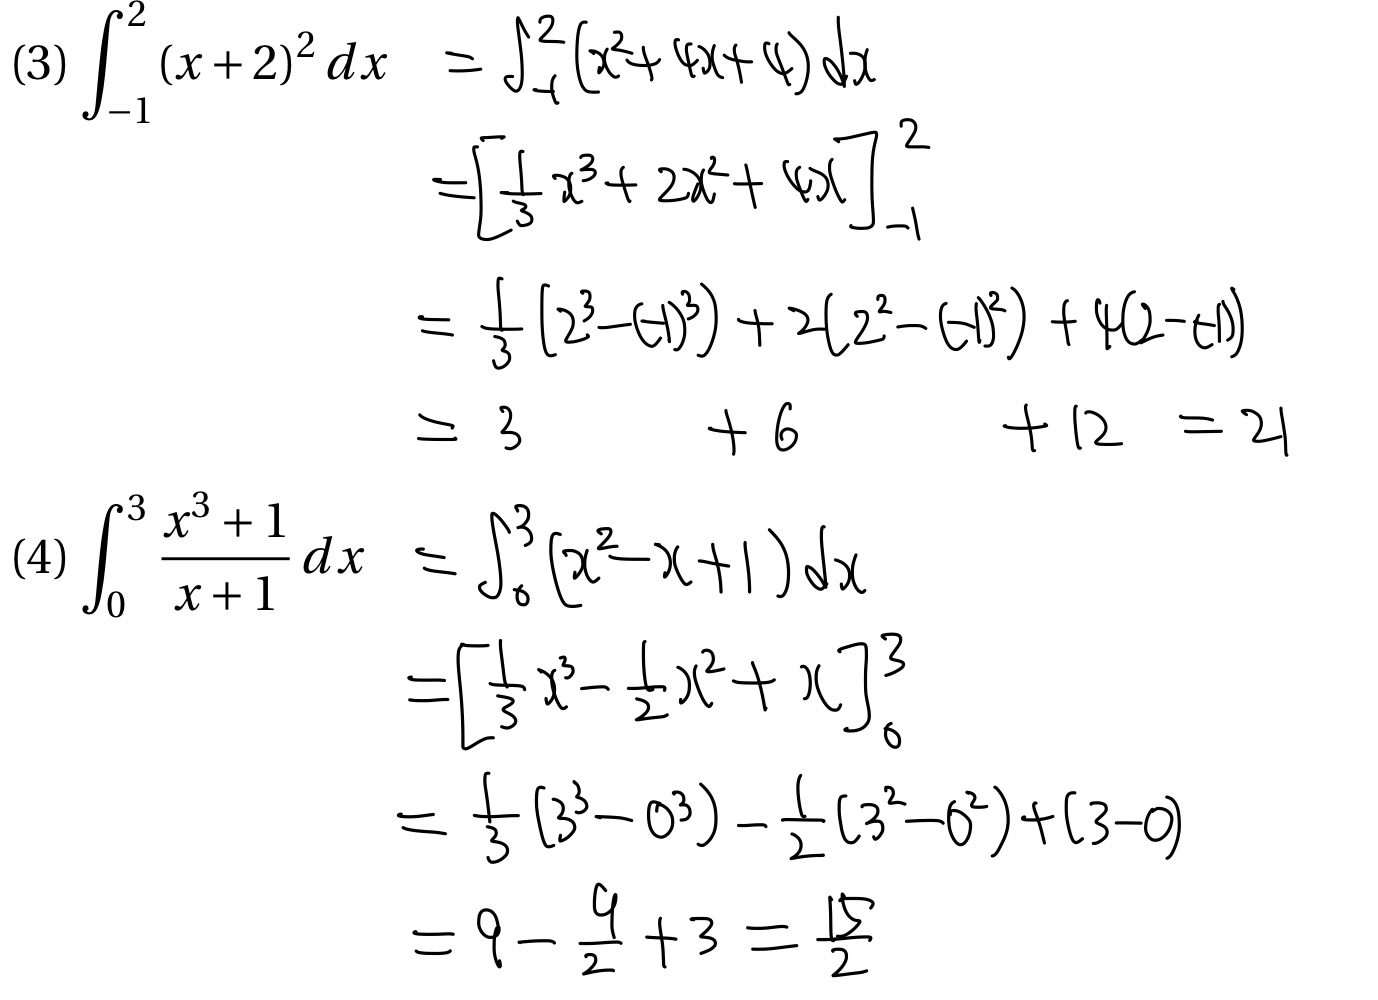 (3) ∫_{-1}^{2} (x+2)² dx = ∫_{-1}^{2} (x²+4x+4) dx
= [1/3 x³ + 2x² + 4x]_{-1}^{2}
= 1/3 (2³-(-1)³) + 2(2²-(-1)²) + 4(2-(-1))
= 3 + 6 + 12 = 21
(4) ∫_{0}^{3} (x³+1)/(x+1) dx = ∫_{0}^{3} (x²-x+1) dx
= [1/3 x³ - 1/2 x² + x]_{0}^{3}
= 1/3 (3³-0³) - 1/2 (3²-0²) + (3-0)
= 9 - 9/2 + 3 = 15/2